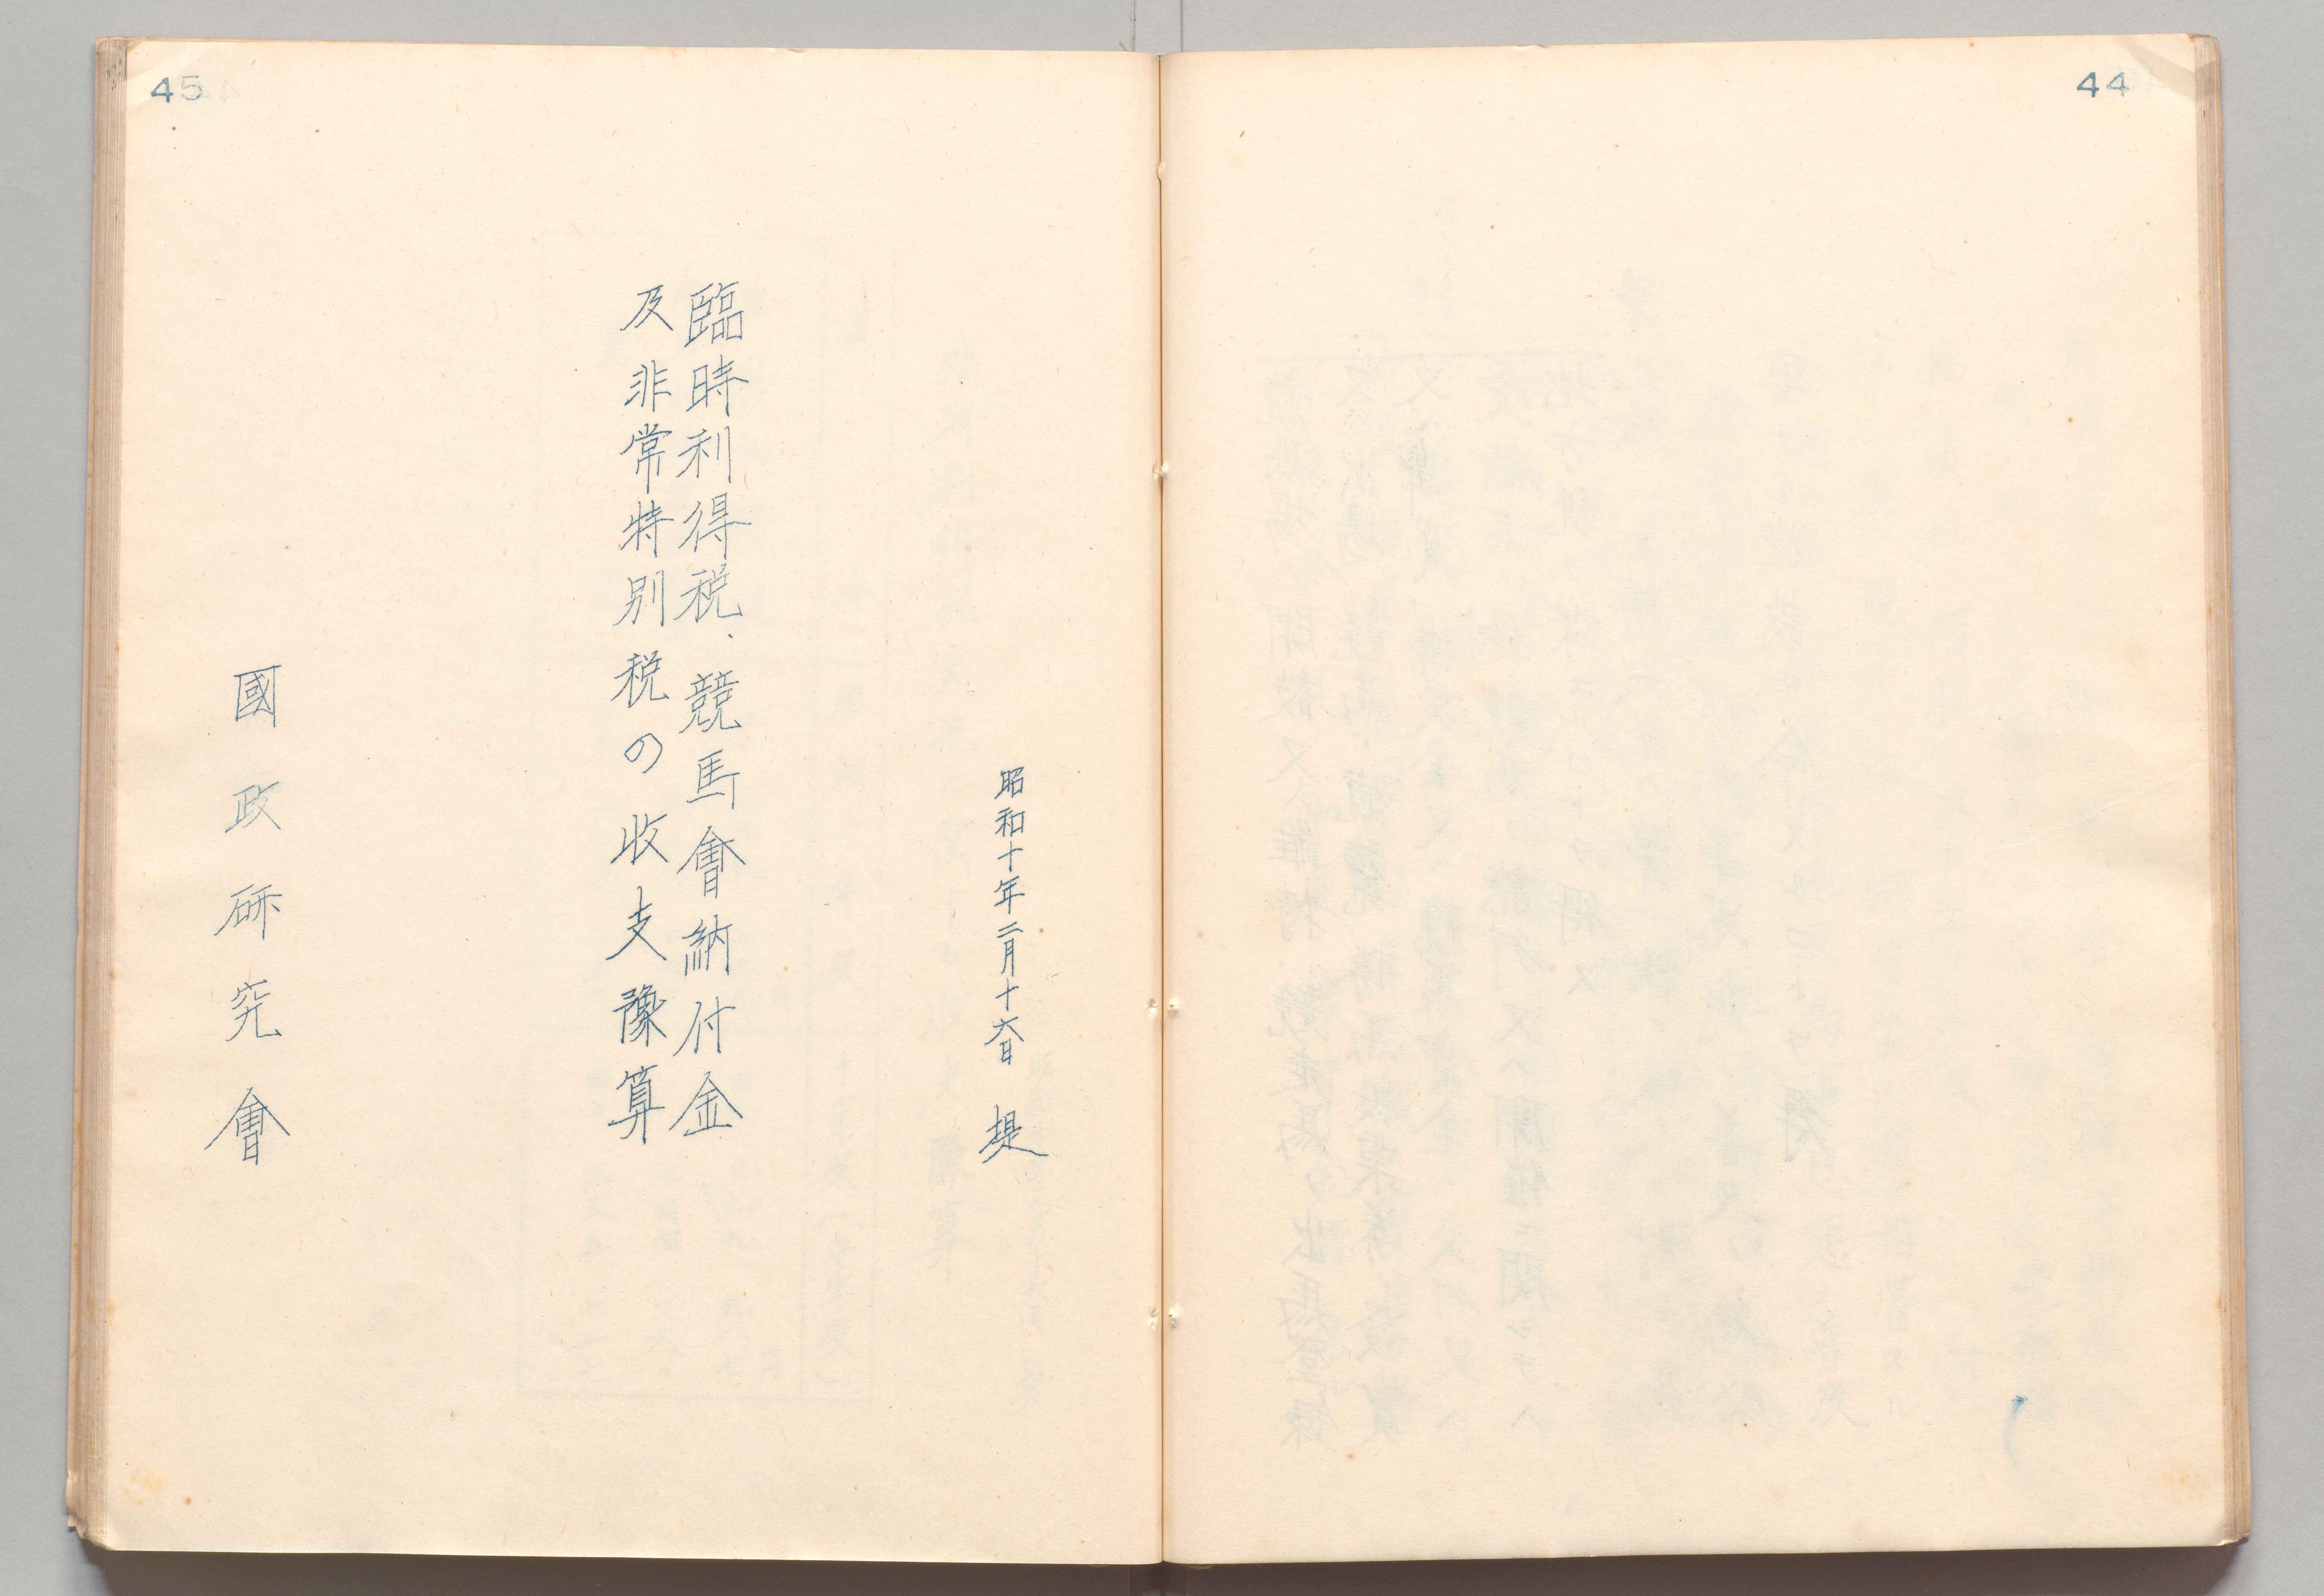 44
45
昭和十年二月十六日 提
臨時利得税、競馬會納付金
及非常特別税の收支豫算
國政研究會